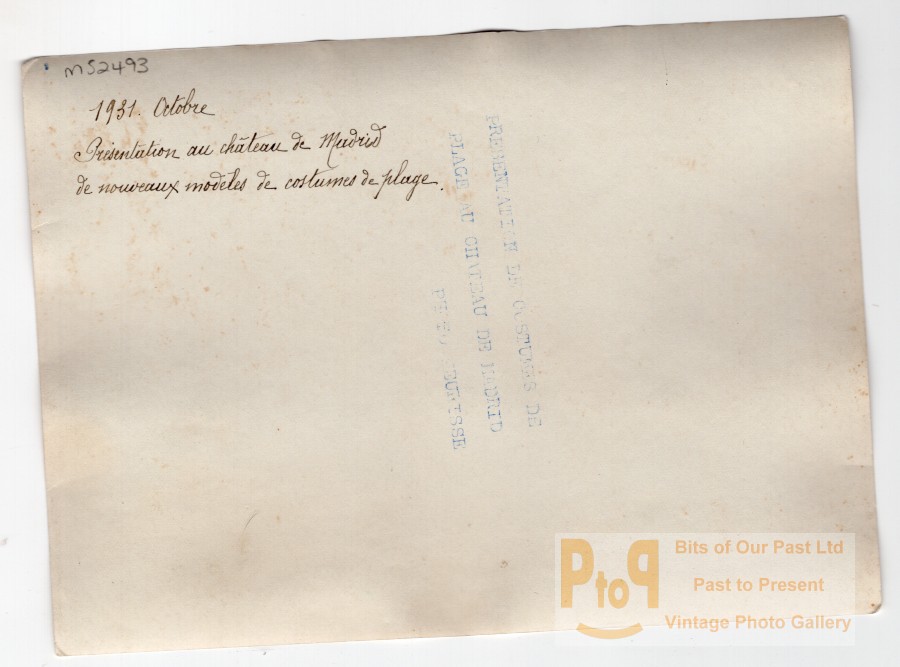 MS2493
1931. Octobre
Présentation au château de Madrid
de nouveaux modèles de costumes de plage.
PRESENTATION DE COSTUMES DE
PLAGE AU CHATEAU DE MADRID
PtoP
Bits of Our Past Ltd
Past to Present
Vintage Photo Gallery